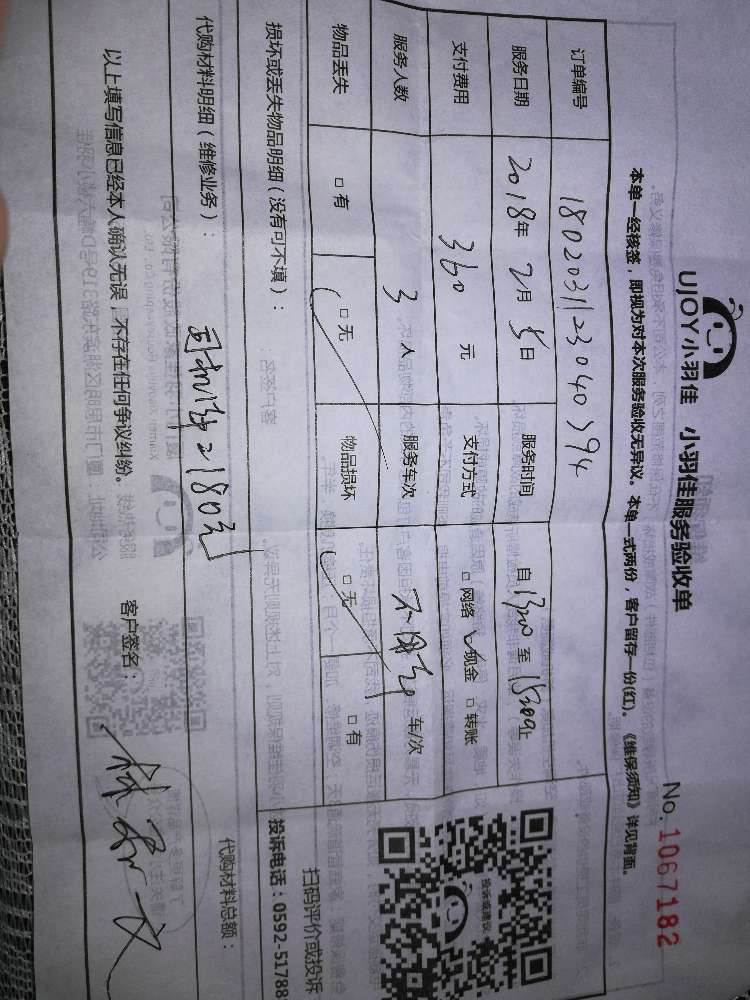 UJOY小羽佳 小羽佳服务验收单
No. 1067182
本单一经核签，即视为对本次服务验收无异议。本单一式两份，客户留存一份(红)。《维保须知》详见背面。
订单编号 1802031123040394
服务日期 2018年2月5日 服务时间 自1300至1530止
支付费用 360 元 支付方式 □网络 ✓现金 □转账
服务人数 3 人 服务车次 车/次
物品丢失 □有 □无 物品损坏 □无 □有
损坏或丢失物品明细(没有可不填)：
扫码评价或投诉
投诉电话：0592-51788
投诉或建议
代购材料明细(维修业务)： 180元
代购材料总额：
以上填写信息已经本人确认无误，不存在任何争议纠纷。 客户签名：